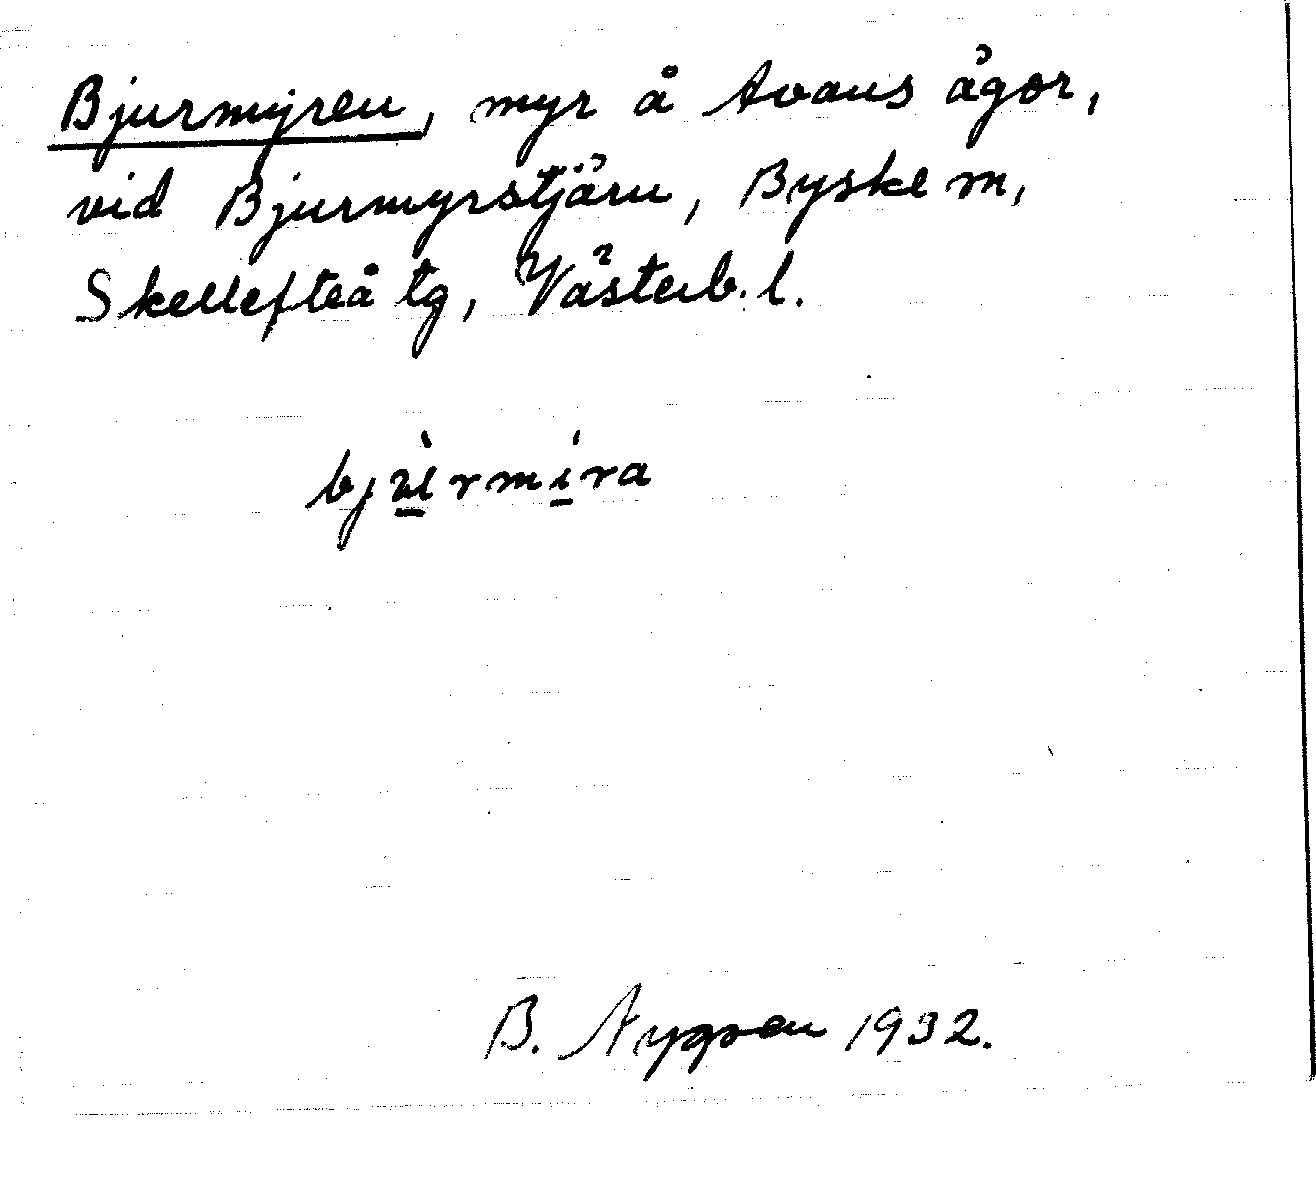 Bjurmyren, myr å Avans ägor,
vid Bjurmyrstjärn, Byske m,
Skellefteå tg, Västerb. l.
bjùrmíra
B. Nygren 1932.